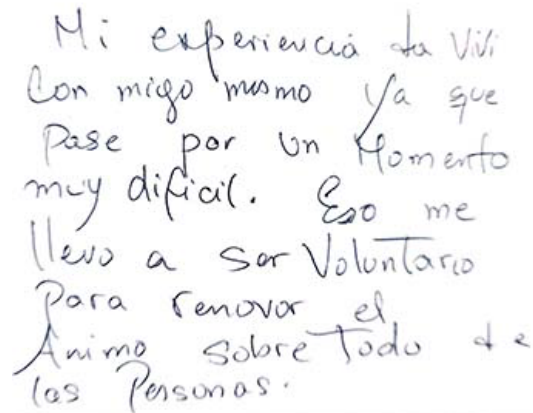 Mi experiencia la Vivi
Con migo mismo Ya que
Pase por un Momento
muy dificil. Eso me
llevo a ser Voluntario
Para renovar el
Animo sobre Todo de
las Personas.